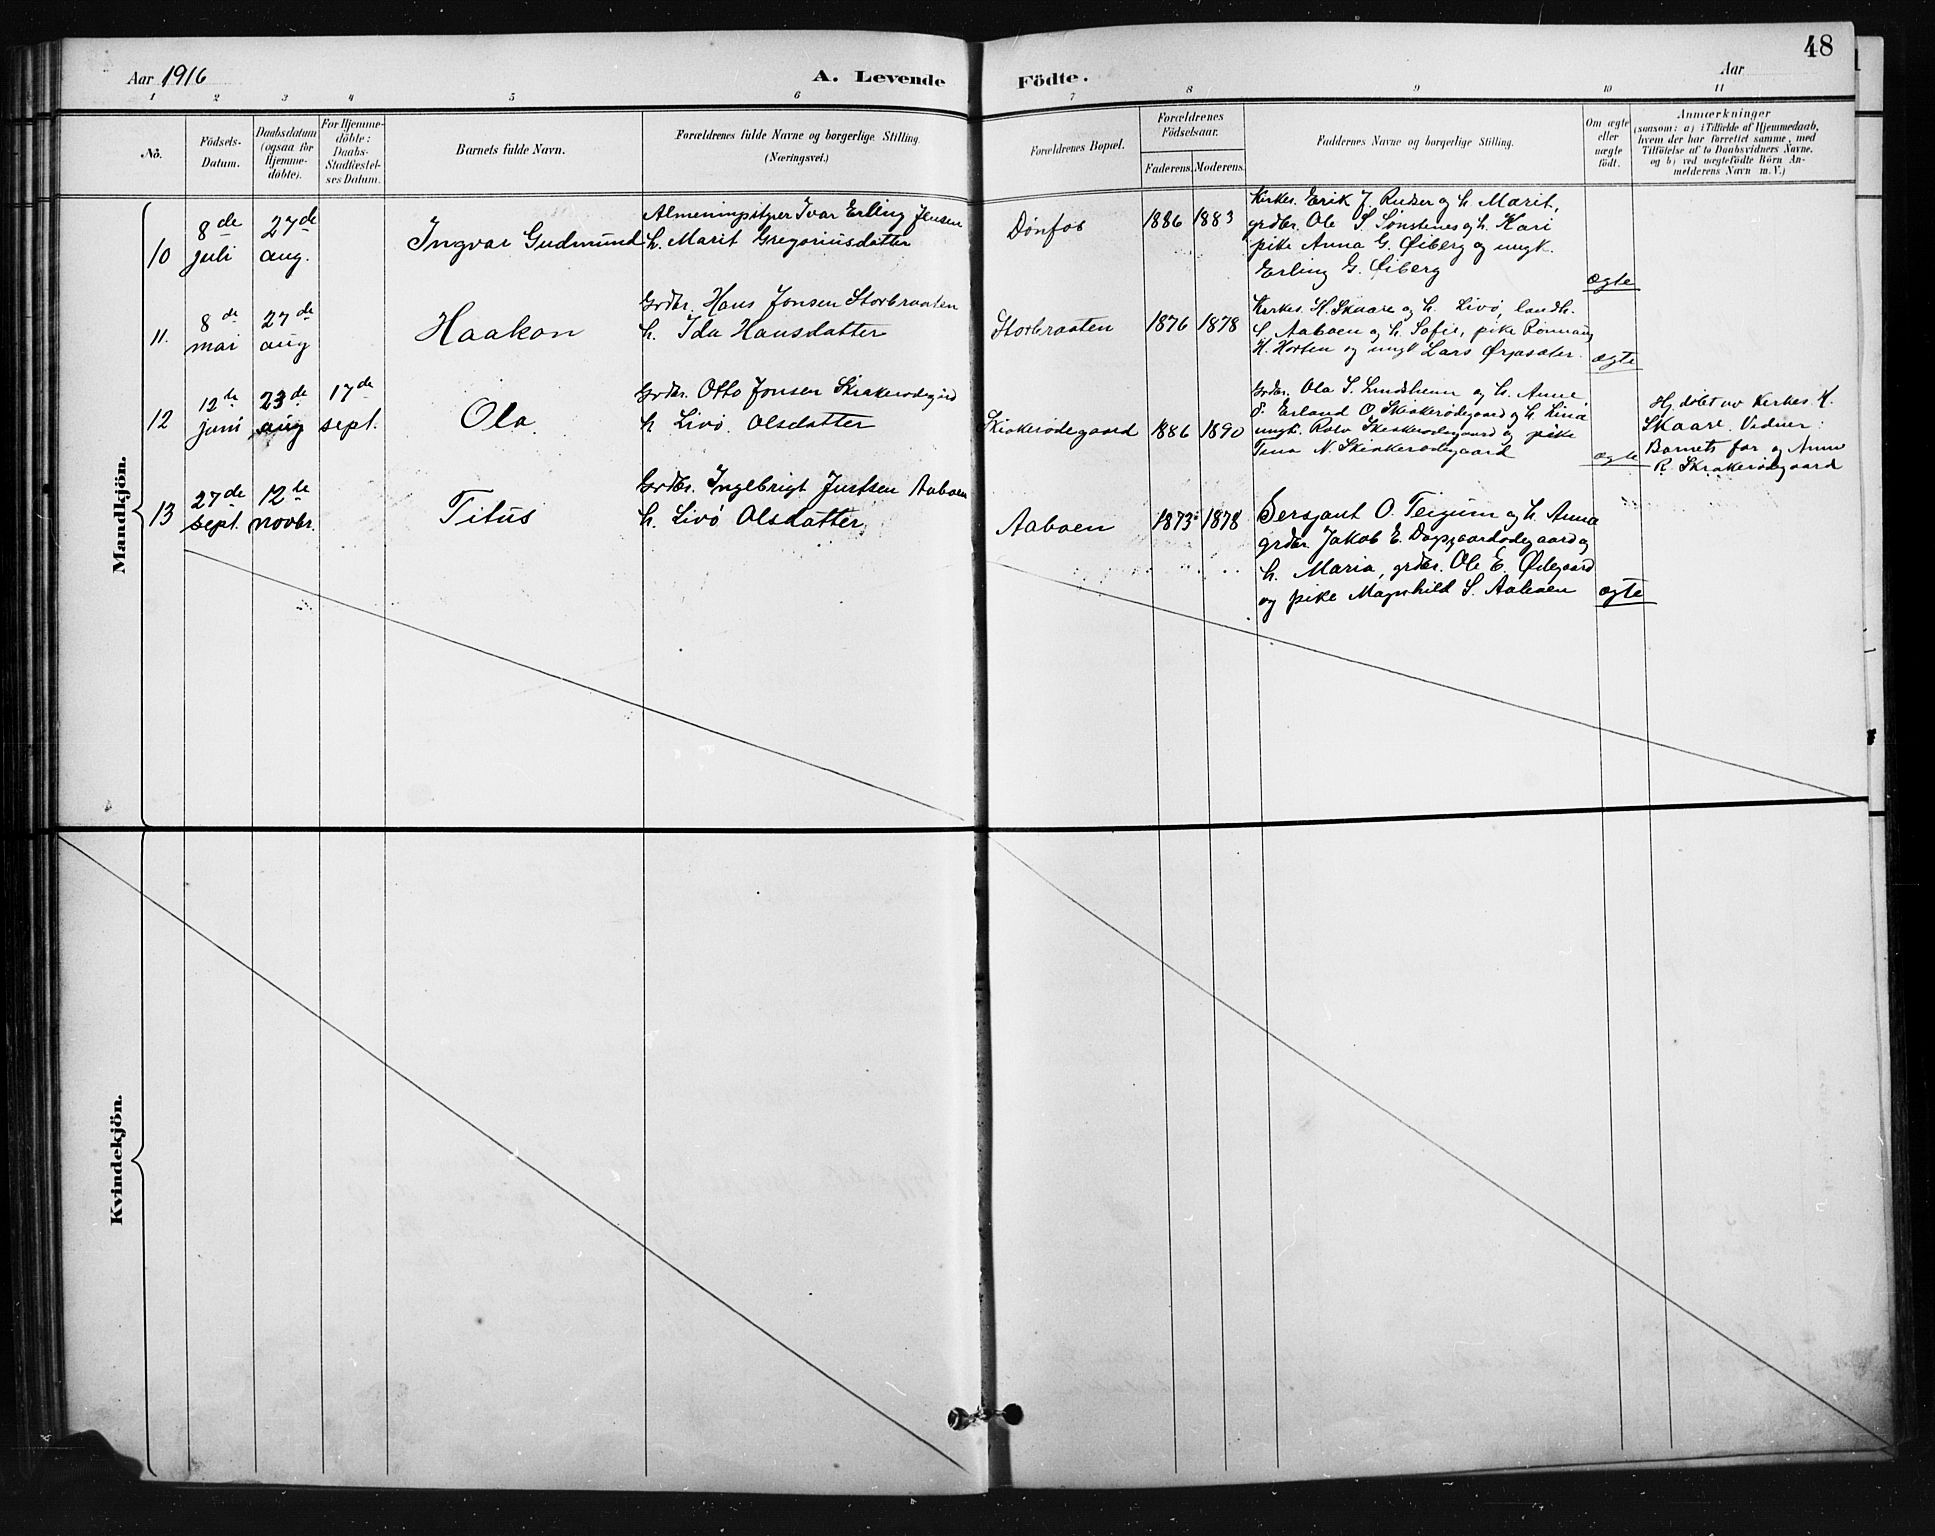 Aar 1916
A. Levende Födte.
Aar
48
1 2 3 4 5 6 7 8 9 10 11
No.
Födsels-
Datum.
Daabsdatum
(ogsaa for
Hjemme-
döbte).
For Hjemme-
döbte:
Daabs-
Stadfæstel-
ses Datum.
Barnets fulde Navn.
Forældrenes fulde Navne og borgerlige Stilling
(Næringsvei.)
Forældrenes Bopæl.
Forældrenes
Födselsaar.
Faderens.
Moderens.
Faddernes Navne og borgerlige Stilling.
Om ægte
eller
uægte
født.
Anmærkninger
(saasom: a) i Tilfælde af Hjemmedaab,
hvem der har forrettet samme, med
Tilföielse af to Daabsvidners Navne,
og b) ved uægtefödte Börn An-
melderens Navn m. V.)
Mandkjön.
10
8de
juli
27de
aug.
Ingvar Gudmund
Ivar Erling Jensen
h. Marit Gregoriusdatter
Dønfos
1886 1883
Kirkes. Erik J. Rudser og h. Marit,
grdbr. Ole S. Sønstenes og h. Kari
pike Anna G. Øiberg og ungk.
Erling G. Øiberg
ægte
11.
8de
mai
27de
aug
Haakon
Grdbr. Hans Jonsen Storbraaten
h. Ida Hansdatter
Storbraaten
1876 1878
Kirkes. H. Skaare og h. Livø, landh.
S. Aaboen og h. Sofie, pike Rønnaug
K. Horten og ungk Lars
ægte
12
12te
juni
23de
aug
17de
sept.
Ola
Grdbr. Otto Jonsen Skiakerødegård
h. Livø Olsdatter
Skiakerødegaard
1886 1890
Grdbr. Ola S. Lindsheim og h. Anne,
S. Erland O. Skiakerødegaard og h. Lina
ungk. Rolv Skiakerødegaard og pike
Tina N. Skiakerødegaard
ægte
Hj. døbt av Kirkes H.
Skaare. Vidner:
Barnets far og Anne
R. Skiakerødegaard
13
27de
sept.
12te
novbr.
Titus
Grdbr. Ingebrigt Justsen Aaboen
h. Livø Olsdatter
Aaboen
1873 1878
Sersjant O. Teigum og h. Anna
grdbr. Jakob E. Dagsgaardødegaard og
h. Maria, grdbr. Ole E. Ødegaard
og pike Magnhild S. Aaboen
ægte
Kvindekjön.